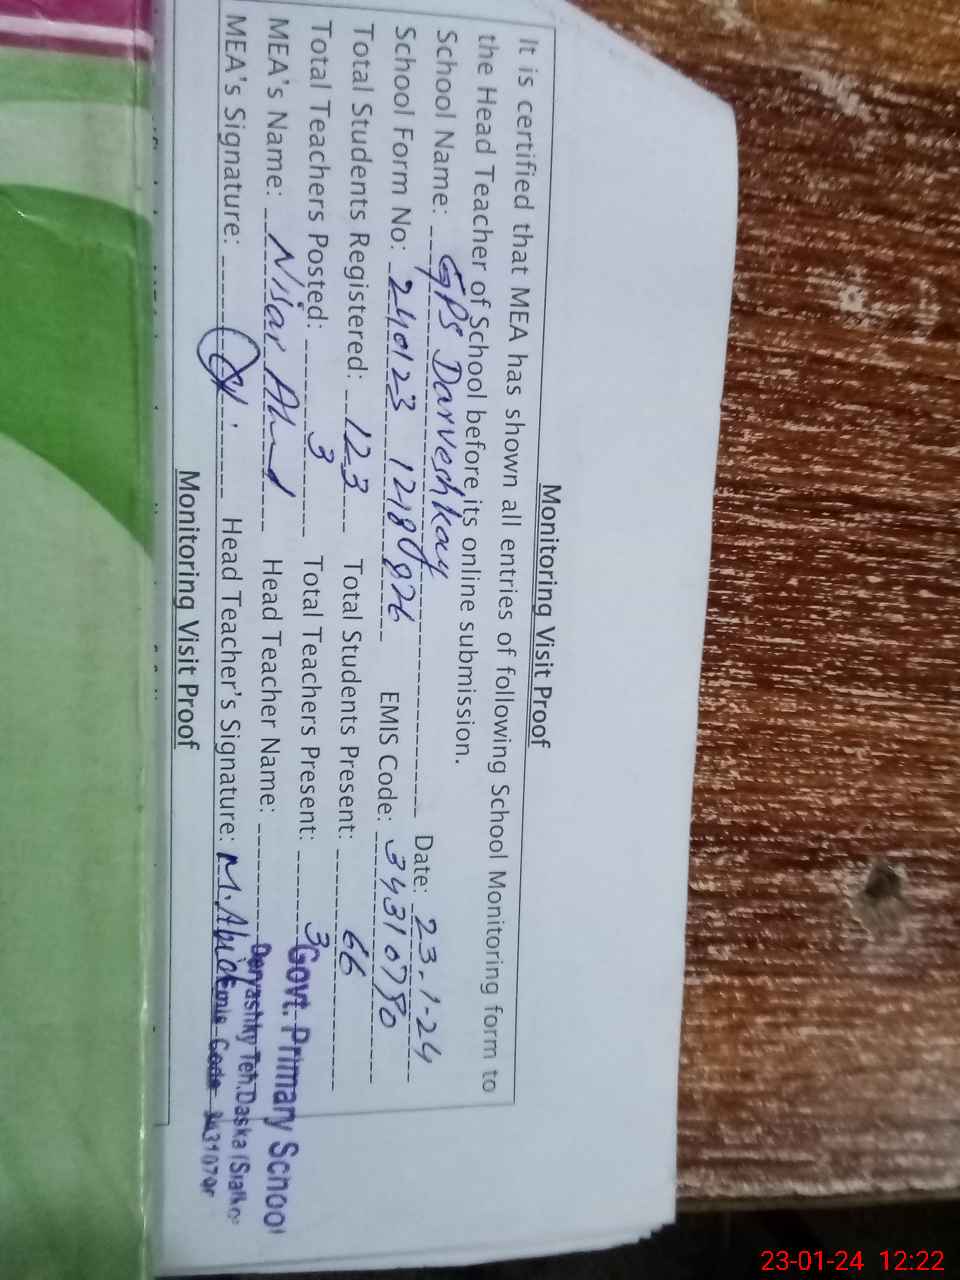 Monitoring Visit Proof
It is certified that MEA has shown all entries of following School Monitoring form to
the Head Teacher of School before its online submission.
School Name: GPS Darveshkay Date: 23-1-24
School Form No: 240123 1218 0826 EMIS Code: 34310780
Total Students Registered: 123 Total Students Present: 66
Total Teachers Posted: 3 Total Teachers Present: 3
MEA's Name: Nisar Ahmd Head Teacher Name:
MEA's Signature: Head Teacher's Signature: M. Abid
Govt. Primary School
Darvashky Teh. Daska (Sialko
Emis Code
Monitoring Visit Proof
23-01-24 12:22